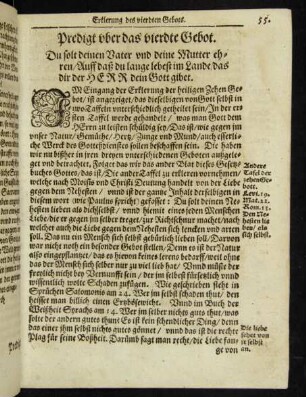 Erklerung des vierdten Gebots.
55.
Predigt vber das vierdte Gebot.
Du solt deinen Vater vnd deine Mutter eh-
ren / Auff daß du lange lebest im Lande das
dir der HERR dein Gott gibet.
IM Eingang der Erklerung der heiligen Zehen Ge-
bot / ist angezeiget / das dieselbigen von Gott selbst in
zwo Taffeln vnterschiedlich getheilet sein / In der er
sten Taffel werde gehandelt / was man Gott dem
HErrn zu leisten schüldig sey / Das ist / wie gegen jm
vnser Natur / Gemüthe / Hertz / Zunge vnd Mund / auch eusserli-
che Werck des Gottesdienstes sollen beschaffen sein. Die haben
wir nu bißher in den dreyen vnterschiedenen Geboten außgele-
get vnd betrachtet / Folget das wir das ander Theil dieses Gesetz-
buches Gottes / das ist / Die ander Taffel zu erkleren vornemen /
welche nach Mosis vnd Christi Deutung handelt von der Liebe
gegen dem Nehesten / vnnd ist der gantz Inhalt derselbigen in
diesem wort (wie Paulus spricht) gefasset: Du solt deinen Ne-
hesten lieben als dichselbst / vnnd hiemit eines jeden Menschen
Liebe die er gegen jm selber treget / zur Richtschnur machet / nach
welcher auch die Liebe gegen dem Nehesten sich lencken vnd arten
soll. Das nu ein Mensch sich selbst gebürlich lieben soll / Daruon
war nicht noth ein besonder Gebot stellen / Denn es ist der Natur
also eingepflantzet / das es hieuon keines lerens bedarff / weil ohne
das der Mensch sich selber nur zu viel lieb hat / Vnnd müste der
freylich nicht bey Vernunfft sein / der jm selbst fürsetzlich vnnd
wissentlich wolte Schaden zufügen. Wie geschrieben steht in
Sprüchen Salomonis am 24. Wer jm selbst schaden thut / den
heisset man billich einen Ertzbösewicht. Vnnd im Buch der
Weißheit Syrachs am 14. Wer jm selber nichts guts thut / was
solte der andern gutes thun? Es ist kein schendlicher Ding / denn
das einer jhm selbst nichts gutes gönnet / vnnd das ist die rechte
Plag für seine Boßheit. Darümb sagt man recht / die Liebe fan-
ge von
Andere
Tafel der
zehen Ge-
bott.
Levi. 19.
Mat. 22.
Rom. 13.
Den Ne-
hesten lie-
ben / als
sich selbst.
Die liebe
sehet von
jr selbst
an.